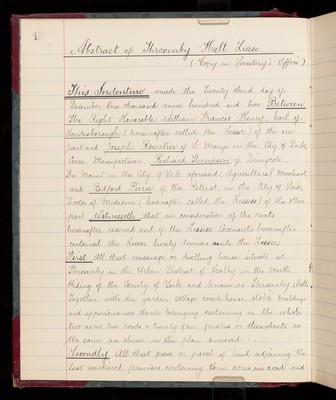 Abstract of Throxenby Hall Lease.
(Copy in Secretary's Office)
This Indenture made the Twenty third day of
December One thousand nine hundred and two Between
The Right Honorable William Francis Henry, Earl of
Londesborough (hereinafter called the Lessor) of the one
part and Joseph Rowntree of St Marys in the City of York,
Cocoa Manufacturer, Richard Thompson of Dringcote,
The Mount in the City of York aforesaid, Agricultural Merchant
and Bedford Pierce of the Retreat, in the City of York,
Doctor of Medicine (hereinafter called the Lessees) of the other
part Witnesseth that in consideration of the rents
hereinafter reserved and of the Lessees Covenants hereinafter
contained the Lessor hereby demises unto the Lessees
First All that messuage or dwelling house situate at
Throxenby in the Urban District of Scalby in the North
Riding of the County of York and known as Throxenby Hall
Together with the garden, cottage, coach house, stable, buildings
and appurtenances thereto belonging containing in the whole
two acres two roods & twenty four perches or thereabouts as
the same are shewn in the plan annexed
Secondly All that piece or parcel of land adjoining the
last mentioned premises containing three acres one rood and